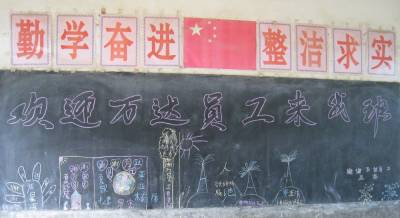 勤学奋进 整洁求实
欢迎万达员工来我班